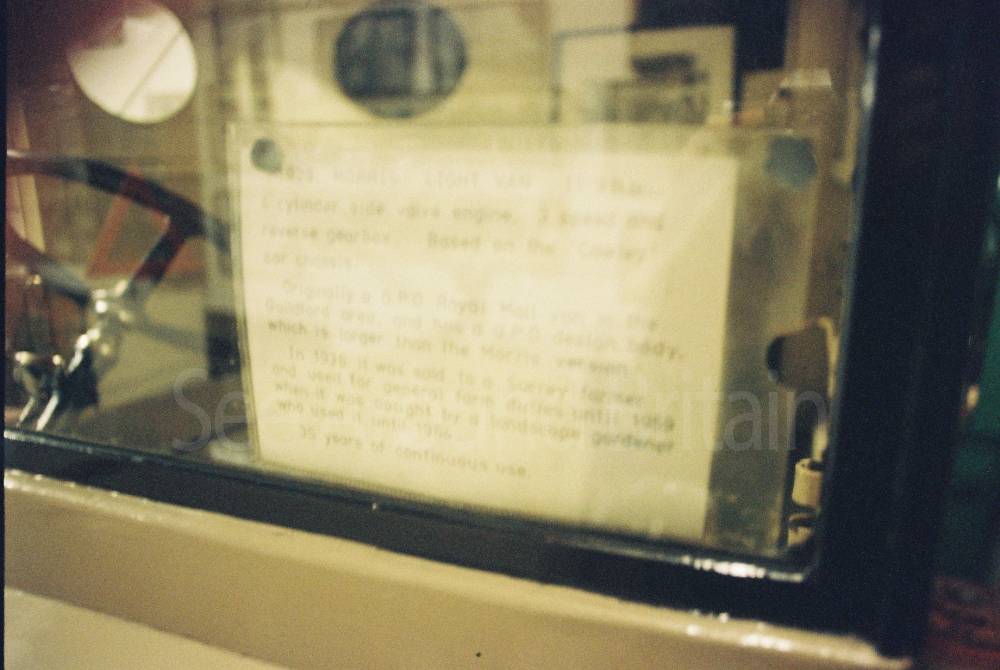 MORRIS LIGHT VAN
cylinder side valve engine, 3 speed and
reverse gearbox. Based on the 'Cowley'
car chassis.
Originally a G.P.O. Royal Mail van in the
Guildford area, and has a G.P.O. design body,
which is larger than the Morris version.
In 1936 it was sold to a Surrey farmer
and used for general farm duties until 1959
when it was bought by a landscape gardener
who used it until 1964
35 years of continuous use